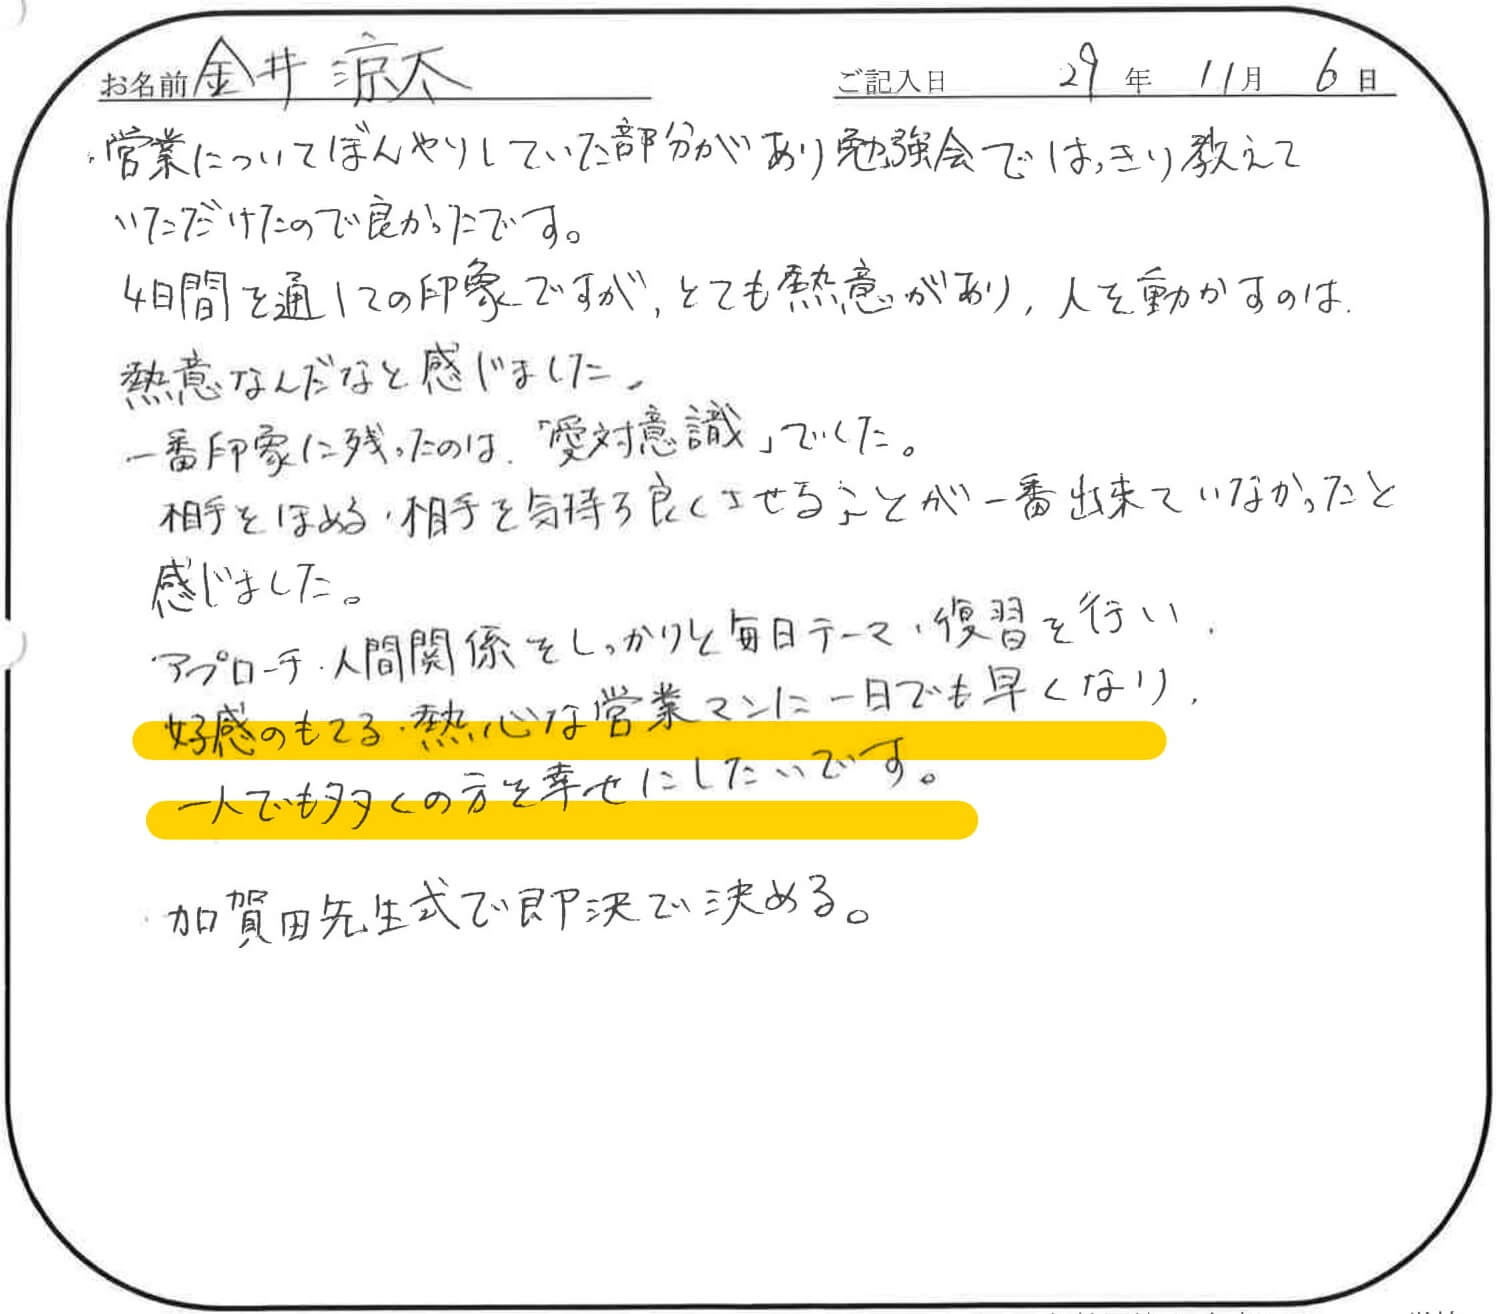 お名前 金井 涼太 ご記入日 29年 11月 6日
・営業についてぼんやりしていた部分があり勉強会ではっきり教えて
いただけたので良かったです。
4日間を通しての印象ですが、とても熱意があり、人を動かすのは、
熱意なんだなと感じました。
一番印象に残ったのは、「愛対意識」でした。
相手をほめる・相手を気持ち良くさせることが一番出来ていなかったと
感じました。
アプローチ・人間関係をしっかりと毎日テーマ・復習を行い、
好感のもてる・熱心な営業マンに一日でも早くなり、
一人でも多くの方を幸せにしたいです。
・加賀田先生式で即決で決める。